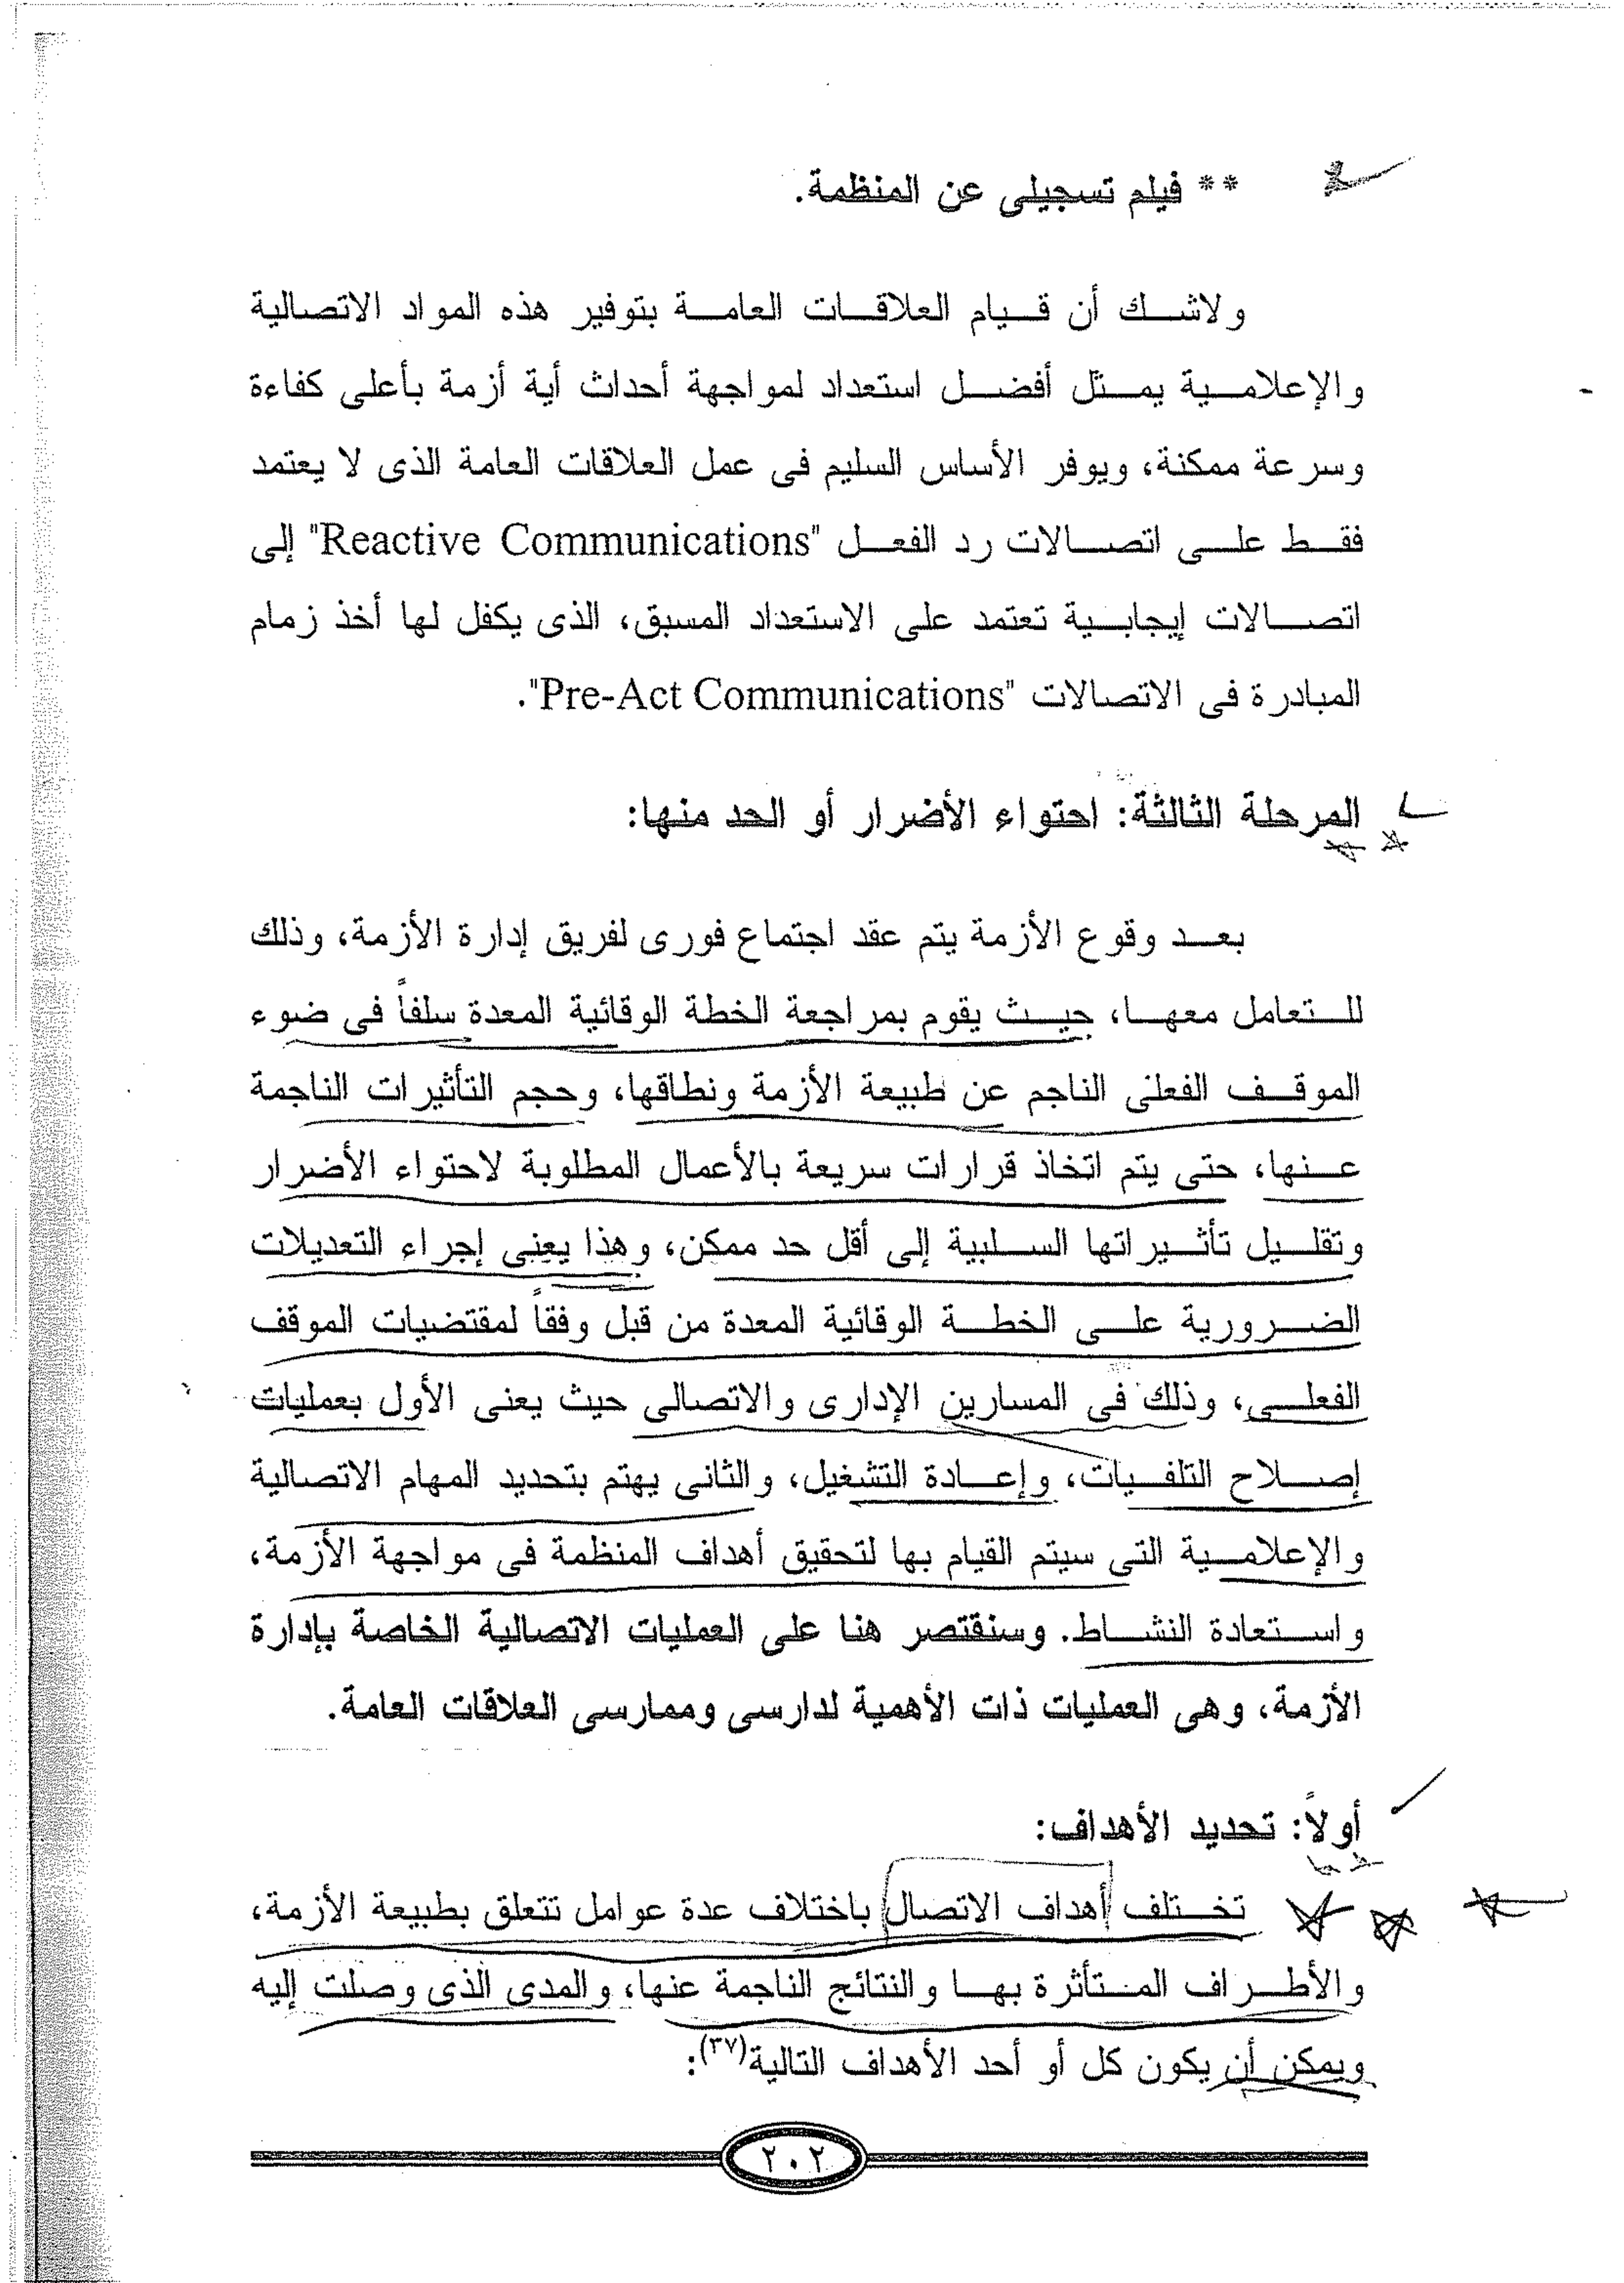 ** فيلم تسجيلى عن المنظمة.
ولاشك أن قيام العلاقات العامة بتوفير هذه المواد الاتصالية
والإعلامية يمثل أفضل استعداد لمواجهة أحداث أية أزمة بأعلى كفاءة
وسرعة ممكنة، ويوفر الأساس السليم فى عمل العلاقات العامة الذى لا يعتمد
فقط على اتصالات رد الفعل "Reactive Communications" إلى
اتصالات إيجابية تعتمد على الاستعداد المسبق، الذى يكفل لها أخذ زمام
المبادرة فى الاتصالات "Pre-Act Communications".
المرحلة الثالثة: احتواء الأضرار أو الحد منها:
بعد وقوع الأزمة يتم عقد اجتماع فورى لفريق إدارة الأزمة، وذلك
للتعامل معها، حيث يقوم بمراجعة الخطة الوقائية المعدة سلفاً فى ضوء
الموقف الفعلى الناجم عن طبيعة الأزمة ونطاقها، وحجم التأثيرات الناجمة
عنها، حتى يتم اتخاذ قرارات سريعة بالأعمال المطلوبة لاحتواء الأضرار
وتقليل تأثيراتها السلبية إلى أقل حد ممكن، وهذا يعنى إجراء التعديلات
الضرورية على الخطة الوقائية المعدة من قبل وفقاً لمقتضيات الموقف
الفعلى، وذلك فى المسارين الإدارى والاتصالى حيث يعنى الأول بعمليات
إصلاح التلفيات، وإعادة التشغيل، والثانى يهتم بتحديد المهام الاتصالية
والإعلامية التى سيتم القيام بها لتحقيق أهداف المنظمة فى مواجهة الأزمة،
واستعادة النشاط. وسنقتصر هنا على العمليات الاتصالية الخاصة بإدارة
الأزمة، وهى العمليات ذات الأهمية لدارسى وممارسى العلاقات العامة.
أولاً: تحديد الأهداف:
تختلف أهداف الاتصال باختلاف عدة عوامل تتعلق بطبيعة الأزمة،
والأطراف المتأثرة بها والنتائج الناجمة عنها، والمدى الذى وصلت إليه
ويمكن أن يكون كل أو أحد الأهداف التالية(٣٧):
٢٠٢